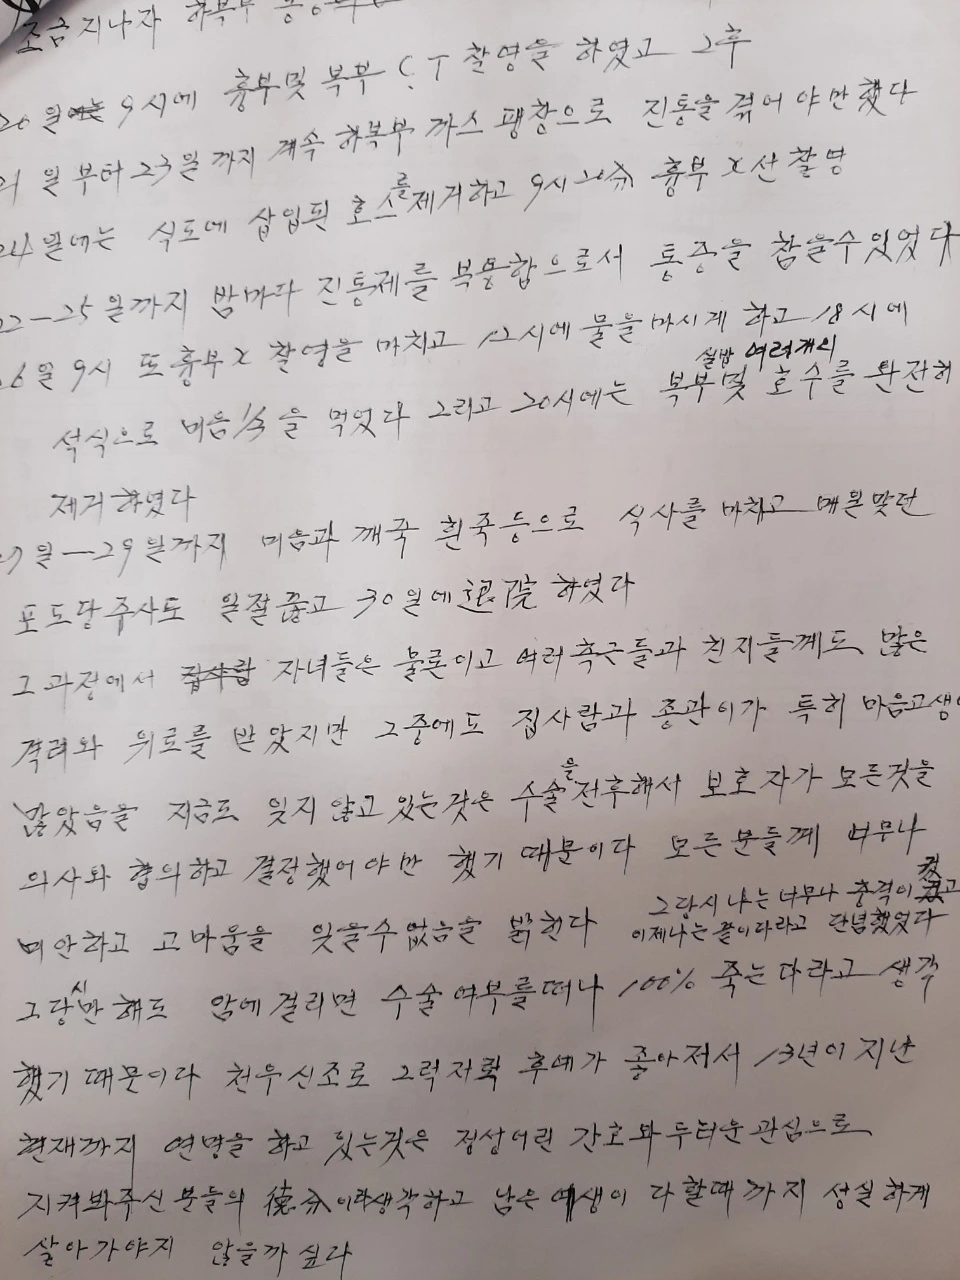 조금 지나자 하복부
20일 9시에 흉부및 복부 C.T 촬영을 하였고 그후
21일 부터 23일 까지 계속 하복부 까스 팽창으로 진통을 겪어야만 했다
24일에는 식도에 삽입된 호스를 제거하고 9시 20分 흉부 X선 촬영
22-25일까지 밤마다 진통제를 복용합으로서 통증을 참을수있었다
26일 9시 또 흉부 X 촬영을 마치고 12시에 물을 마시게 하고 18시에
실밥 여러개의
석식으로 미음 1/3을 먹었다 그리고 20시에는 복부및 호수를 완전히
제거하였다
27일-29일까지 미음과 깨죽 흰죽등으로 식사를 마치고 매일맞던
포도당주사도 일잘끊고 30일에 退院 하였다
그 과정에서 자녀들은 물론이고 여러 측근들과 친지들께도 많은
격려와 위로를 받았지만 그중에도 집사람과 종관이가 특히 마음고생이
많았음을 지금도 잊지 않고 있는것은 수술을 전후해서 보호자가 모든것을
의사와 협의하고 결정했어야만 했기 때문이다 모든 분들께 너무나
미안하고 고마움을 잊을수없음을 밝힌다 그당시 나는 너무나 충격이 컸고
이제나는 끝이다라고 단념했었다
그당시만 해도 암에 걸리면 수술여부를 떠나 100% 죽는다라고 생각
했기 때문이다 천우신조로 그럭저럭 후예가 좋아저서 13년이 지난
현재까지 연명을 하고 있는것은 정성어린 간호와 두터운 관심으로
지켜봐주신 분들의 德分이라생각하고 남은 여생이 다할때 까지 성실하게
살아가야지 않을까 싶다